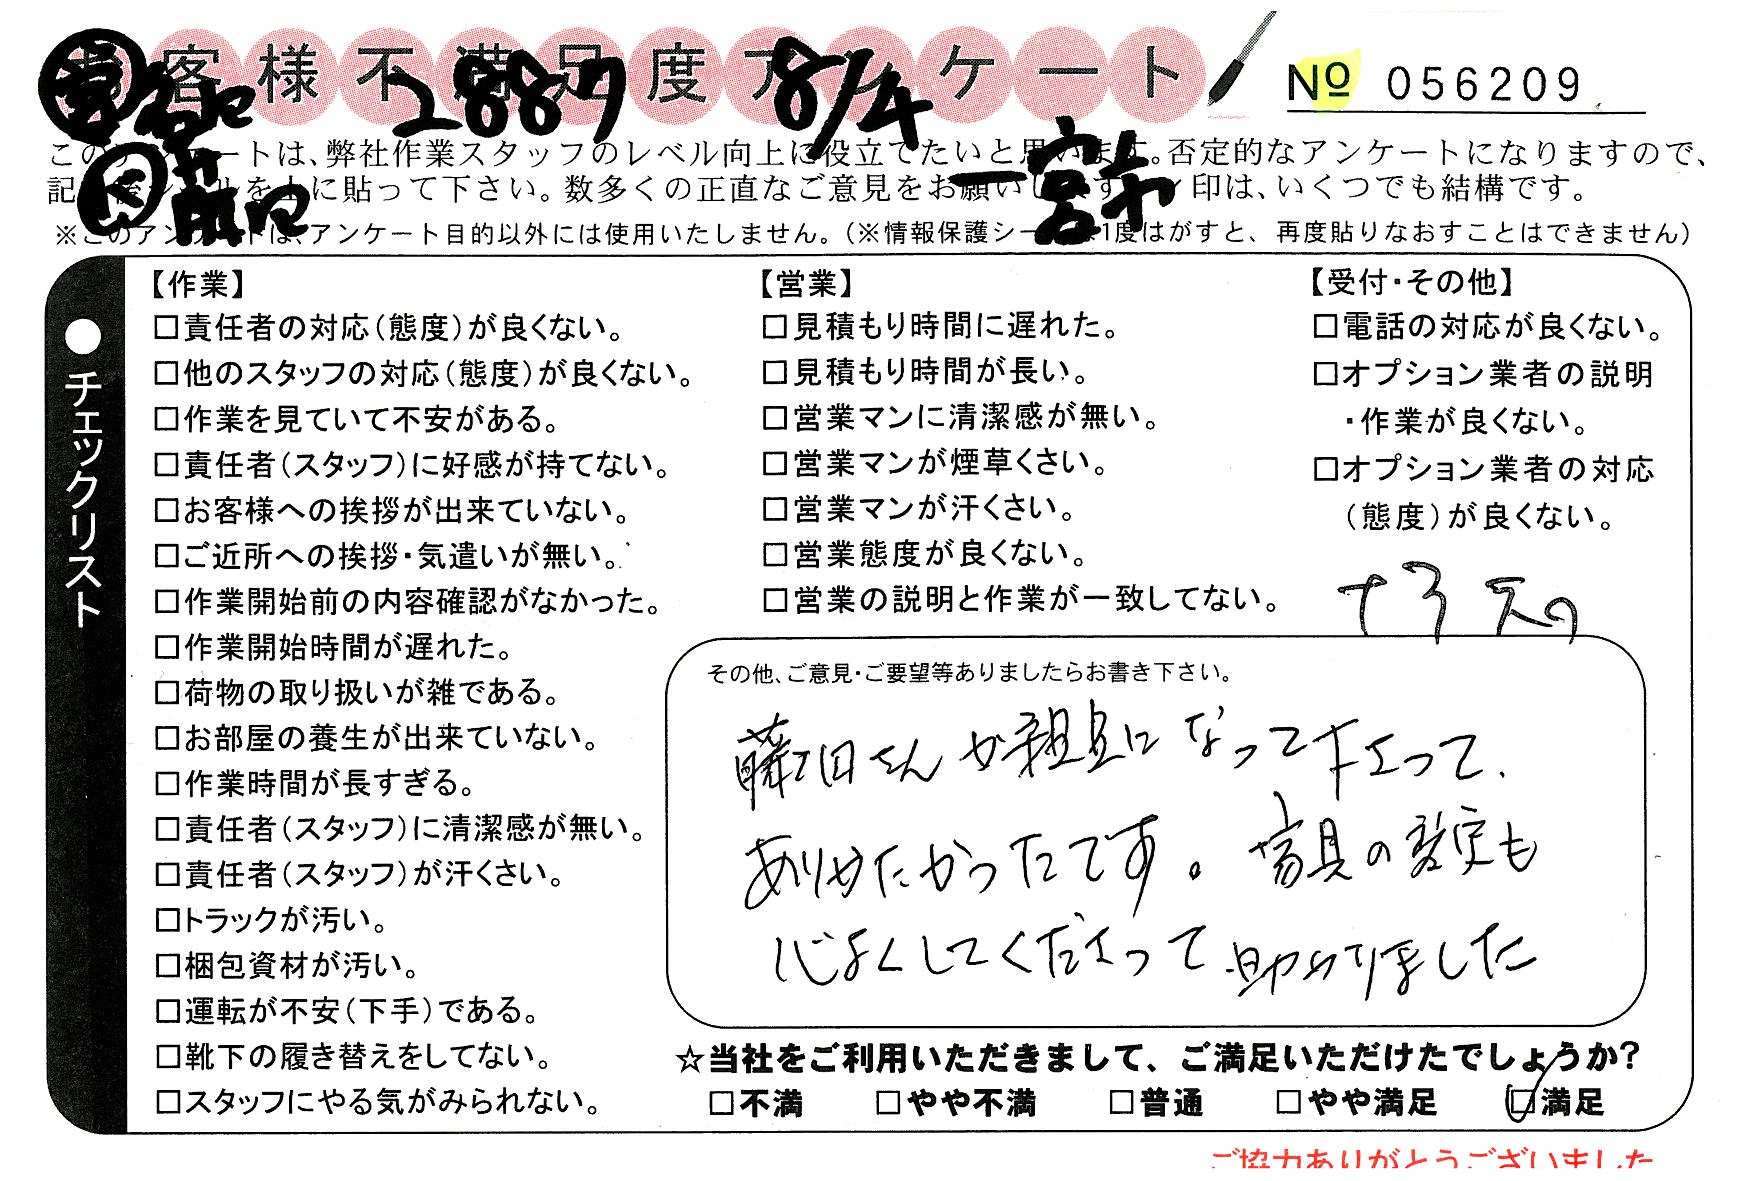 お客様不満足度アンケート
2887 8/4
No 056209
このアンケートは、弊社作業スタッフのレベル向上に役立てたいと思います。否定的なアンケートになりますので、
記入後シールを上に貼って下さい。数多くの正直なご意見をお願いします。レ印は、いくつでも結構です。
一宮市
※このアンケートは、アンケート目的以外には使用いたしません。(※情報保護シールは1度はがすと、再度貼りなおすことはできません)
●チェックリスト
【作業】
□責任者の対応(態度)が良くない。
□他のスタッフの対応(態度)が良くない。
□作業を見ていて不安がある。
□責任者(スタッフ)に好感が持てない。
□お客様への挨拶が出来ていない。
□ご近所への挨拶・気遣いが無い。
□作業開始前の内容確認がなかった。
□作業開始時間が遅れた。
□荷物の取り扱いが雑である。
□お部屋の養生が出来ていない。
□作業時間が長すぎる。
□責任者(スタッフ)に清潔感が無い。
□責任者(スタッフ)が汗くさい。
□トラックが汚い。
□梱包資材が汚い。
□運転が不安(下手)である。
□靴下の履き替えをしてない。
□スタッフにやる気がみられない。
【営業】
□見積もり時間に遅れた。
□見積もり時間が長い。
□営業マンに清潔感が無い。
□営業マンが煙草くさい。
□営業マンが汗くさい。
□営業態度が良くない。
□営業の説明と作業が一致してない。
【受付・その他】
□電話の対応が良くない。
□オプション業者の説明
・作業が良くない。
□オプション業者の対応
(態度)が良くない。
その他、ご意見・ご要望等ありましたらお書き下さい。
藤田さんが親身になって下さって、
ありがたかったです。家具の変更も
心よくしてくださって助かりました
☆当社をご利用いただきまして、ご満足いただけたでしょうか?
□不満 □やや不満 □普通 □やや満足 ☑満足
ご協力ありがとうございました